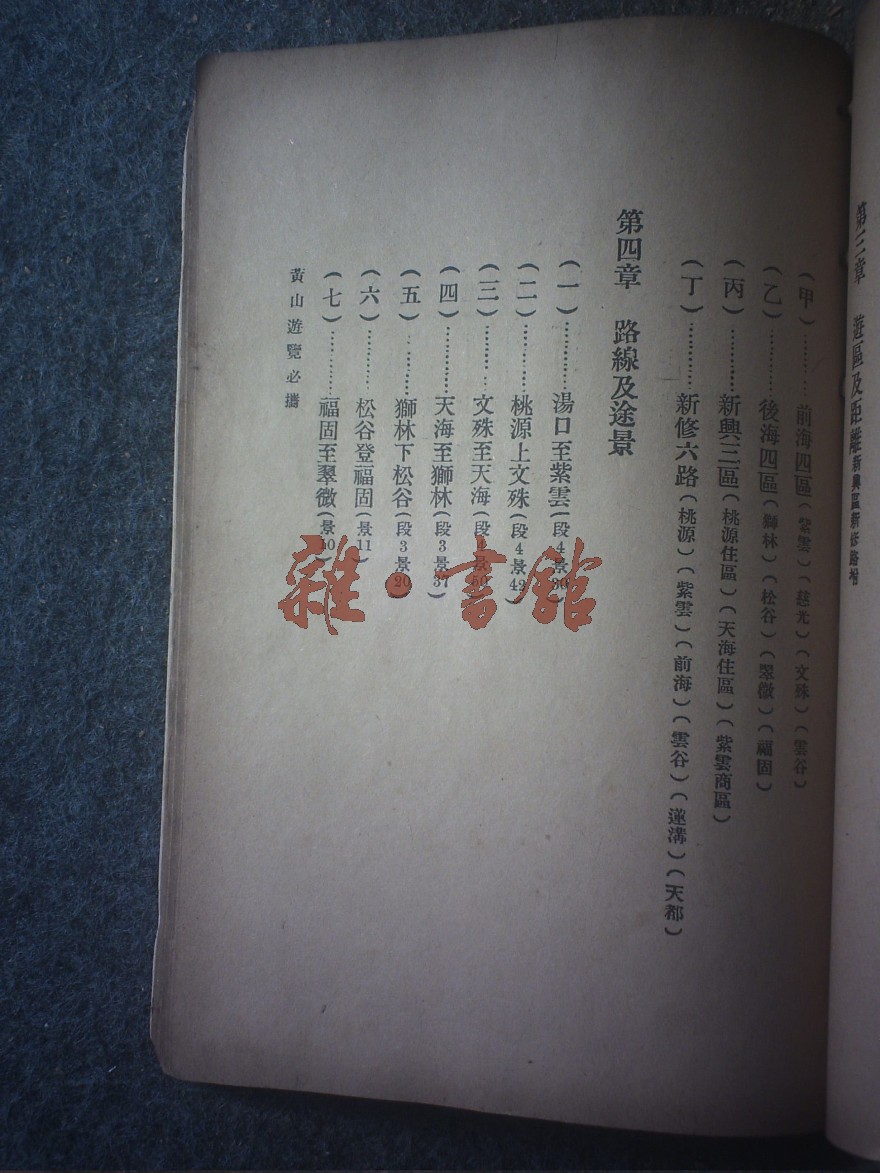 第三章　遊區及距離新興區新修路增
(甲)…………前海四區(紫雲)(慈光)(文殊)(雲谷)
(乙)…………後海四區(獅林)(松谷)(翠微)(福固)
(丙)…………新興三區(桃源住區)(天海住區)(紫雲商區)
(丁)…………新修六路(桃源)(紫雲)(前海)(雲谷)(蓮溝)(天都)
第四章　路線及途景
(一)…………湯口至紫雲(段4景30)
(二)…………桃源上文殊(段4景42)
(三)…………文殊至天海(段4景50)
(四)…………天海至獅林(段3景37)
(五)…………獅林下松谷(段3景20)
(六)…………松谷登福固(景11)
(七)…………福固至翠微(景10)
黃山遊覽必攜
雜·書館